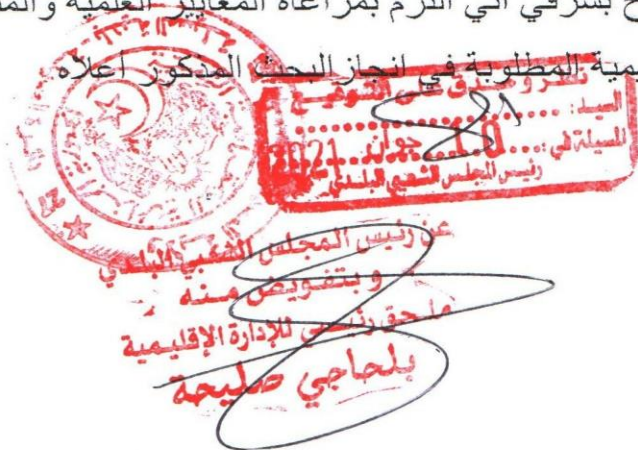 ح بشرفي أني ألتزم بمراعاة المعايير العلمية والم
يمية المطلوبة في انجاز البحث المذكور أعلاه
نظر و صدق على التوقيع
السيد: ........
المسيلة في: ..... جوان 2021
رئيس المجلس الشعبي البلدي
عن رئيس المجلس الشعبي البلدي
و بتفويض منه
ملحق رئيسي للإدارة الإقليمية
بلحاجي صليحة